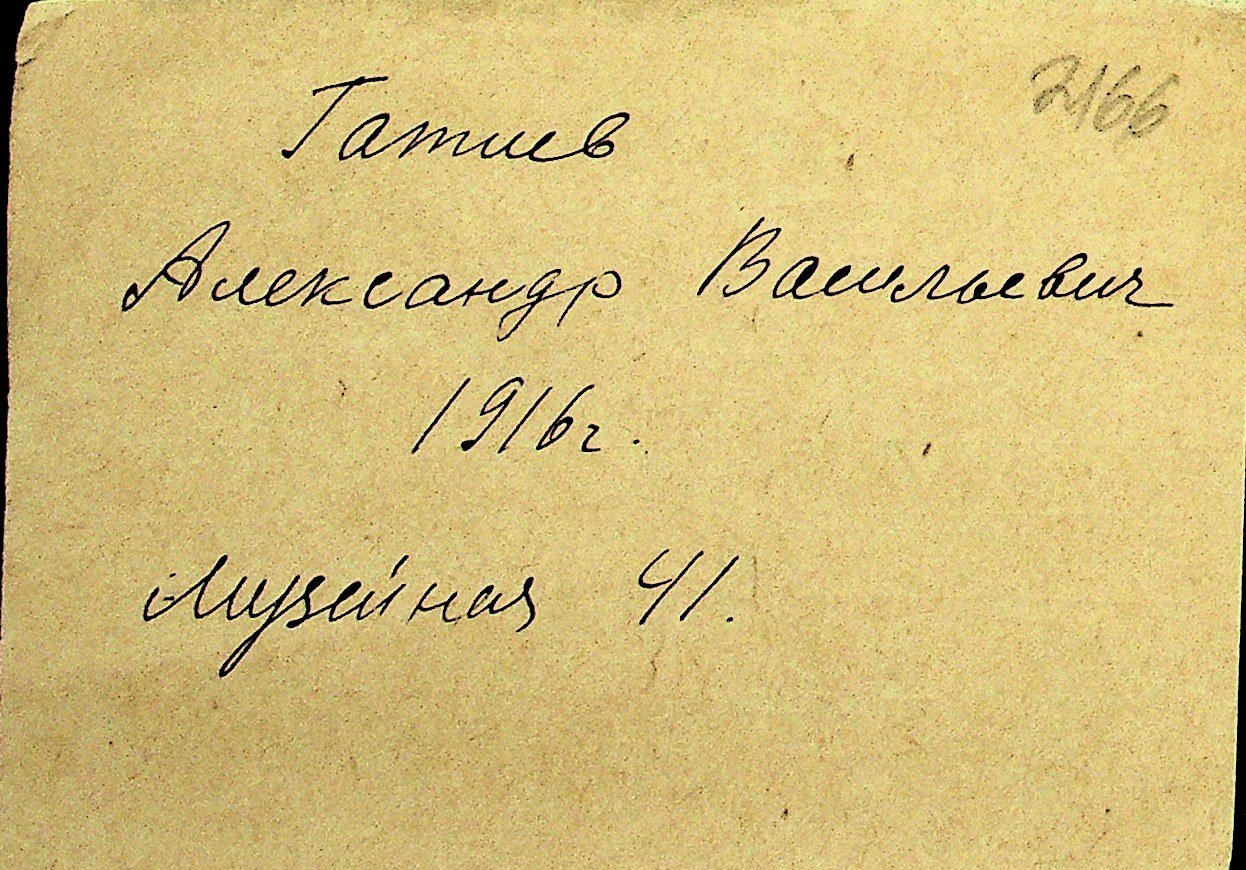 2166
Гатиев
Александр Васильевич
1916г.
Музейная 41.